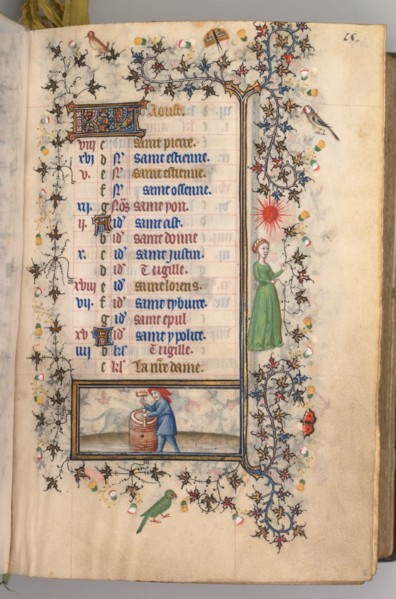 25.
KL Aoust.
viii c saint pierre.
xvi d No. saint estienne.
v. e No. saint estienne.
f No. saint ossenne.
xiii. g Nos saint yon.
ii. A id' saint sist.
b id' saint donne
x. c id' saint justin.
d id' Vigille.
xviii e id' saint lorens.
vii. f id' saint tyburce.
g id' saint epul
xv A id' saint ypolite.
iiii b kl' Vigille.
c kl' La nre dame.